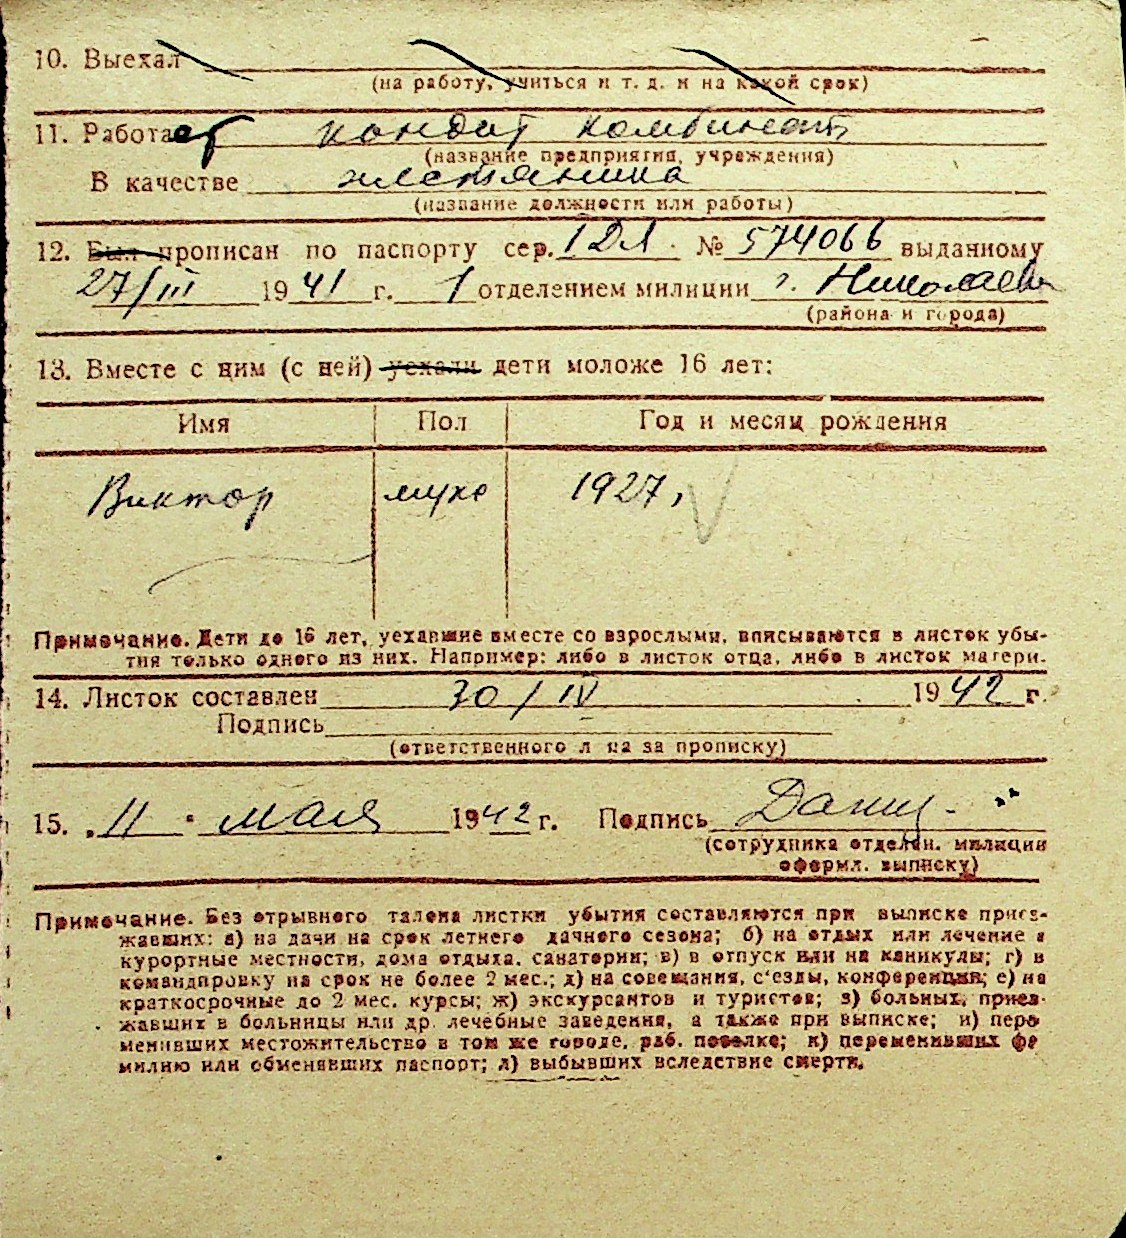 10. Выехал
(на работу, учиться и т. д. и на какой срок)
11. Работает кондит комбинат
(название предприятия, учреждения)
В качестве жестянщика
(название должности или работы)
12. Был прописан по паспорту сер. 1 ДЛ № 574066 выданному
27/III 1941 г. 1 отделением милиции г. Николаева
(района и города)
13. Вместе с ним (с ней) уехали дети моложе 16 лет:
Имя Пол Год и месяц рождения
Виктор муж 1927,
Примечание. Дети до 16 лет, уехавшие вместе со взрослыми, вписываются в листок убы-
тия только одного из них. Например: либо в листок отца, либо в листок матери.
14. Листок составлен 30/IV 1942 г.
Подпись
(ответственного л ца за прописку)
15. „11" мая 1942 г. Подпись
(сотрудника отделен. милиции
оформл. выписку)
Примечание. Без отрывного талона листки убытия составляются при выписке приез-
жавших: а) на дачи на срок летнего дачного сезона; б) на отдых или лечение в
курортные местности, дома отдыха, санатории; в) в отпуск или на каникулы; г) в
командировку на срок не более 2 мес.; д) на совещания, с'езды, конференции; е) на
краткосрочные до 2 мес. курсы; ж) экскурсантов и туристов; з) больных, приез-
жавших в больницы или др. лечебные заведения, а также при выписке; и) пере
менивших местожительство в том же городе, раб. поселке; к) переменивших фа
милию или обменявших паспорт; л) выбывших вследствие смерти.